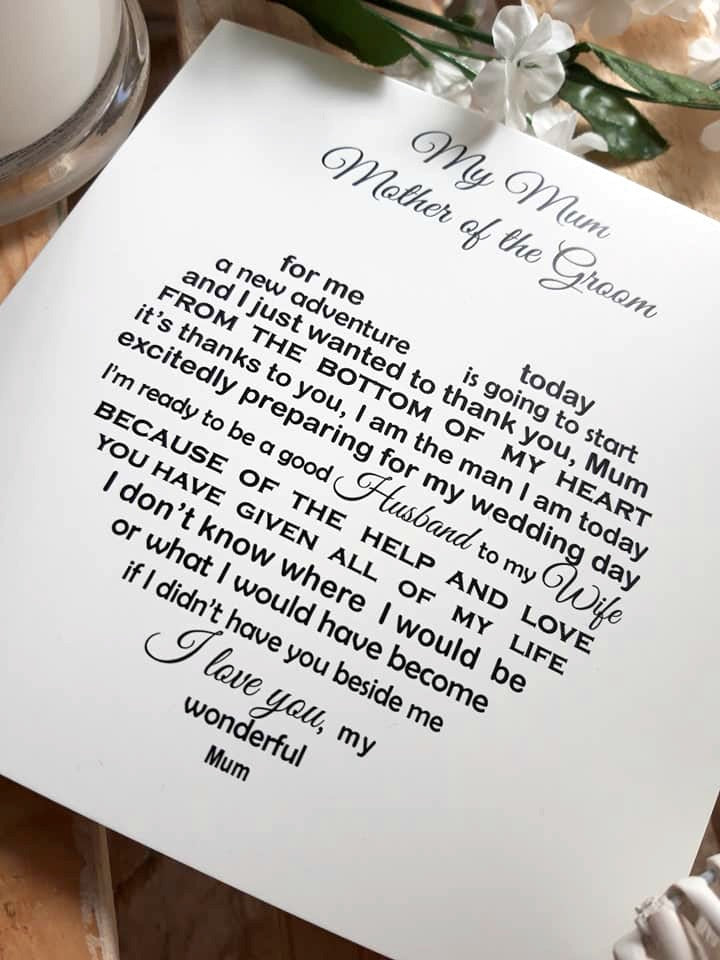 My Mum
Mother of the Groom
for me today
a new adventure is going to start
and I just wanted to thank you, Mum
FROM THE BOTTOM OF MY HEART
it's thanks to you, I am the man I am today
excitedly preparing for my wedding day
I'm ready to be a good Husband to my Wife
BECAUSE OF THE HELP AND LOVE
YOU HAVE GIVEN ALL OF MY LIFE
I don't know where I would be
or what I would have become
if I didn't have you beside me
I love you, my
wonderful
Mum